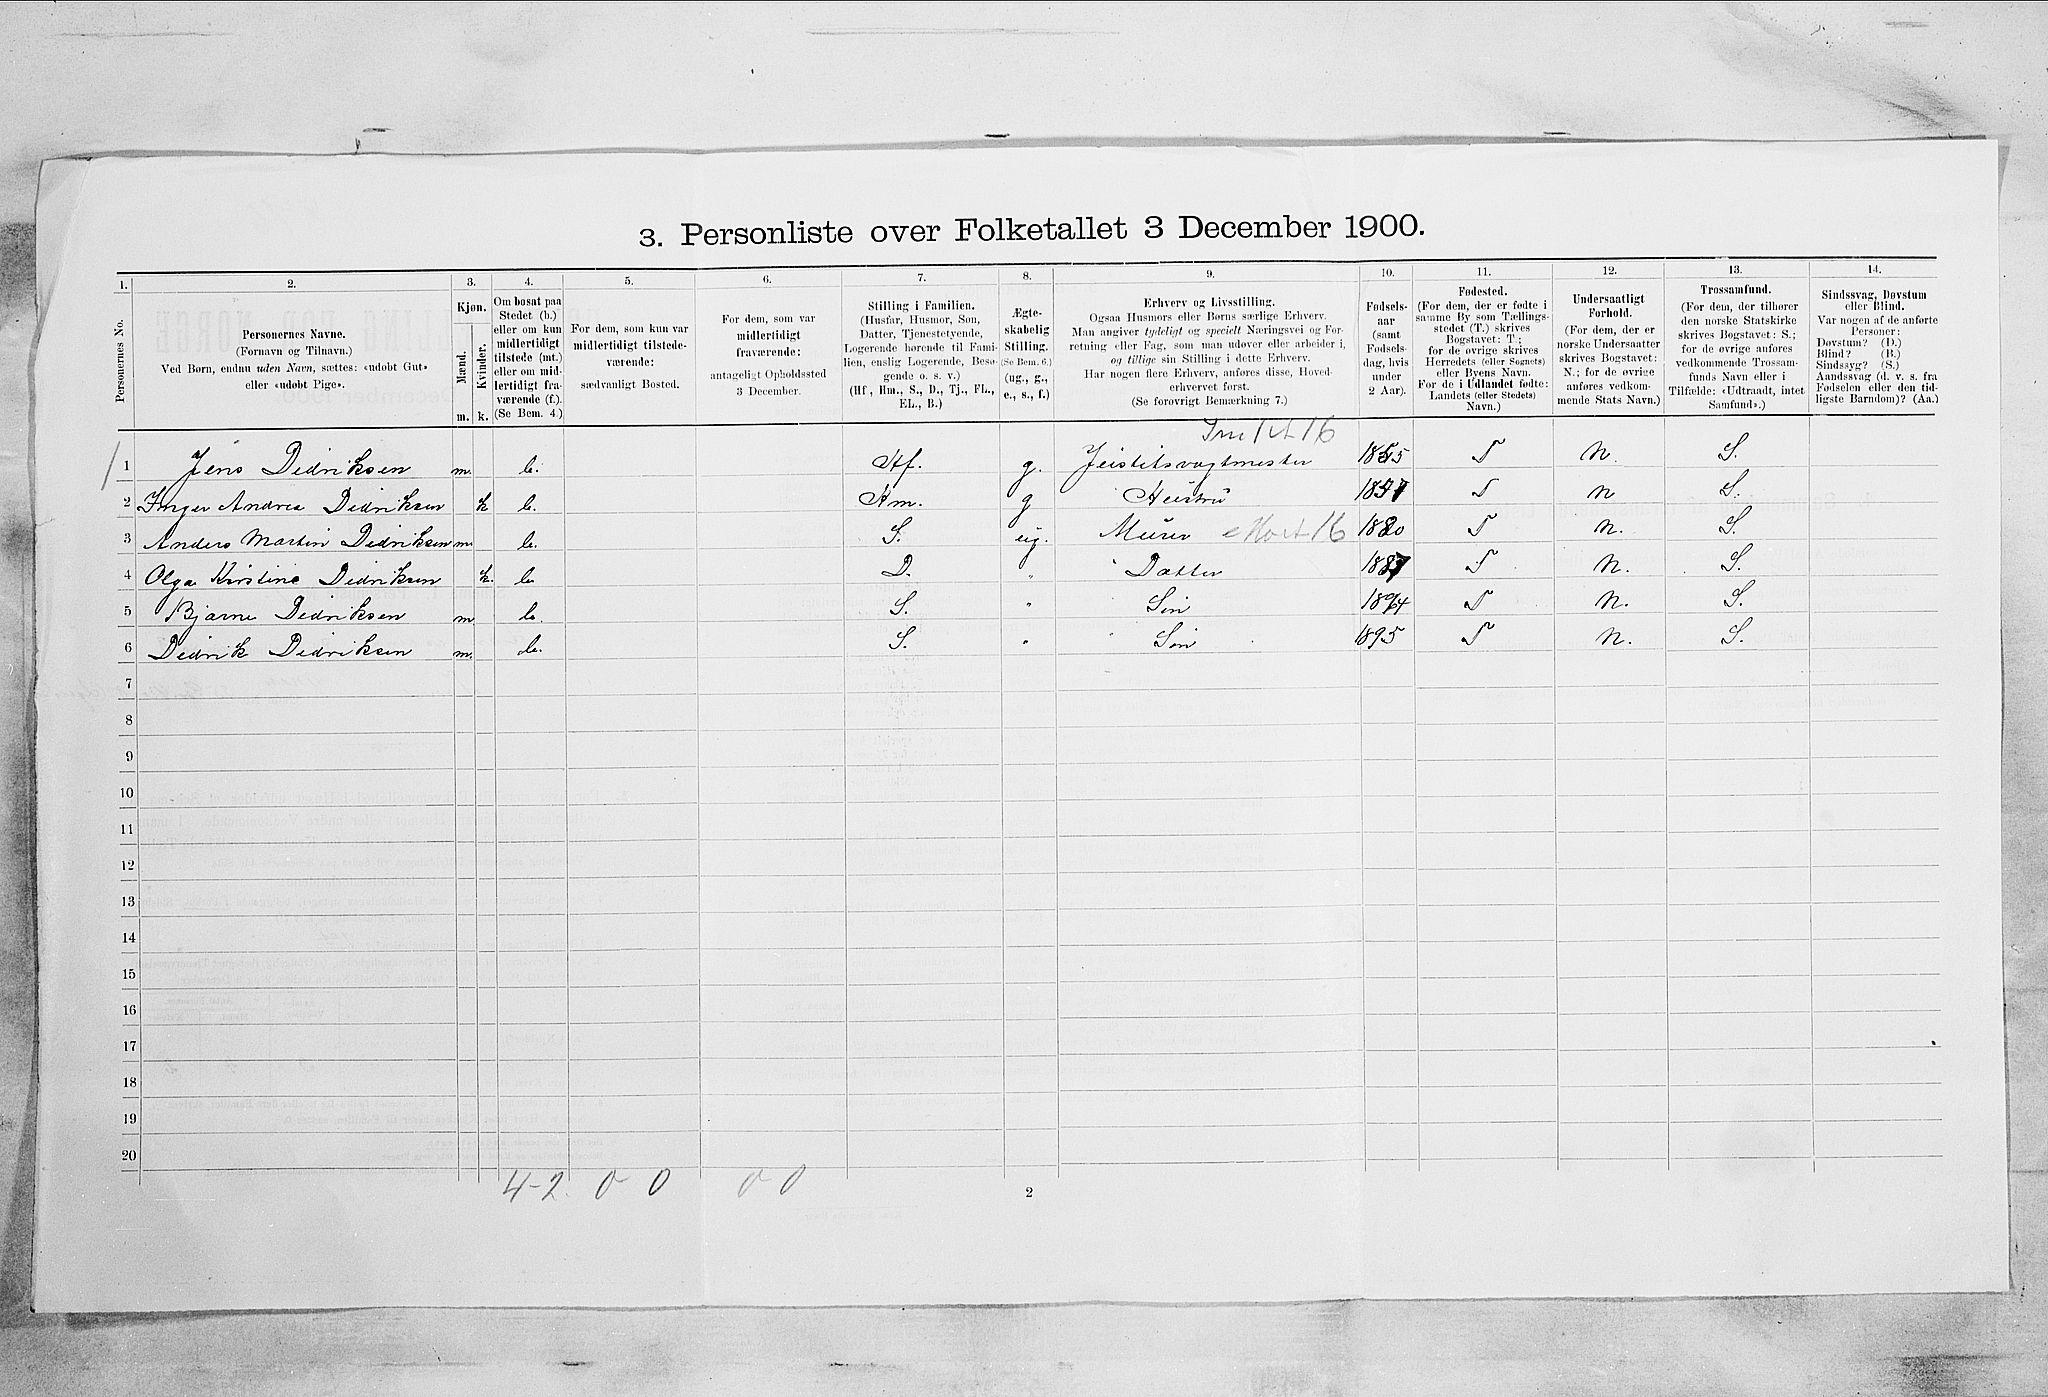 3. Personliste over Folketallet 3 December 1900.
1. 2. 3. 4. 5. 6. 7. 8. 9. 10. 11. 12. 13. 14.
Personernes No.
Personernes Navne.
(Fornavn og Tilnavn.)
Ved Børn, endnu uden Navn, sættes: «udøbt Gut»
eller «udøbt Pige».
Kjøn.
Mænd.
Kvinder.
m. k.
Om bosat paa
Stedet (b.)
eller om kun
midlertidigt
tilstede (mt.)
eller om mid-
lertidigt fra-
værende (f.).
(Se Bem. 4.)
For dem, som kun var
midlertidigt tilstede-
værende:
sædvanligt Bosted.
For dem, som var
midlertidigt
fraværende:
antageligt Opholdssted
3 December.
Stilling i Familien.
(Husfar, Husmor, Søn,
Datter, Tjenestetyende,
Logerende hørende til Fami-
lien, enslig Logerende, Besø-
gende o. s. v.)
(Hf., Hm., S., D., Tj., FL.,
EL., B.)
Ægte-
skabelig
Stilling.
(Se Bem. 6.)
(ug., g.,
e., s., f.)
Erhverv og Livsstilling.
Ogsaa Husmors eller Børns særlige Erhverv.
Man angiver tydeligt og specielt Næringsvei og For-
retning eller Fag, som man udøver eller arbeider i,
og tillige sin Stilling i dette Erhverv.
Har nogen flere Erhverv, anføres disse, Hoved-
erhvervet først.
(Se forøvrigt Bemærkning 7.)
Fødsels-
aar
(samt
Fødsels-
dag, hvis
under
2 Aar).
Fødested.
(For dem, der er fødte i
samme By som Tællings-
stedet (T.) skrives
Bogstavet: T.;
for de øvrige skrives
Herredets (eller Sognets)
eller Byens Navn.
For de i Udlandet fødte:
Landets (eller Stedets)
Navn.)
Undersaatligt
Forhold.
(For dem, der er
norske Undersaatter
skrives Bogstavet:
N.; for de øvrige
anføres vedkom-
mende Stats Navn.)
Trossamfund.
(For dem, der tilhører
den norske Statskirke
skrives Bogstavet: S.;
for de øvrige anføres
vedkommende Trossam-
funds Navn eller i
Tilfælde: «Udtraadt, intet
Samfund».)
Sindssvag, Døvstum
eller Blind.
Var nogen af de anførte
Personer:
Døvstum? (D.)
Blind? (B.)
Sindssyg? (S.)
Aandssvag (d. v. s. fra
Fødselen eller den tid-
ligste Barndom)? (Aa.)
1 Jens Didriksen m. b. Hf. g. 1855 T N. S.
2 Inger Andrea Didriksen k b. Hm. g Hustru 1857 T N S.
3 Anders Martin Didriksen m. b. S. ug. Murer 1880 T N. S.
4 Olga Kristine Didriksen k. b D. " Datter 1887 T N. S.
5 Bjarne Didriksen m b S. " Søn 1894 T N. S.
6 Didrik Didriksen m. b. S. " Søn 1895 T N. S.
7
8
9
10
11
12
13
14
15
16
17
18
19
20
4-2. 0 0 0 0
2